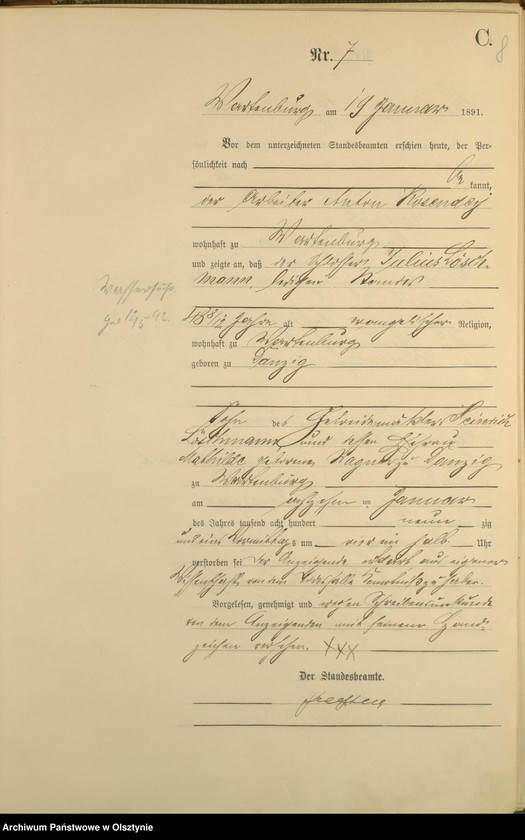 C.
8
Nr. 7
Wartenburg am 19 Januar 1891.
Vor dem unterzeichneten Standesbeamten erschien heute, der Per-
sönlichkeit nach
be kannt,
der Arbeiter Anton
wohnhaft zu Wartenburg
und zeigte an, daß der Schlosser Julius Lösch-
mann, ledigen Standes
Jahre alt evangelischer Religion,
wohnhaft zu Wartenburg
geboren zu Danzig
Sohn des Getreidemäklers Heinrich
Löschmann und dessen Ehefrau
Mathilde geborenen zu Danzig
zu Wartenburg
am achtzehn ten Januar
des Jahres tausend acht hundert neun zig
und eins Vormittags um vier ein halb Uhr
verstorben sei der Anzeigende erklärt aus eigener
Wissenschaft von dem Todesfalle Kenntniß zu haben.
Vorgelesen, genehmigt und wegen Schreibensunkunde
von dem Anzeigenden mit seinem Hand-
zeichen versehen. XXX
Der Standesbeamte.
Archiwum Państwowe w Olsztynie